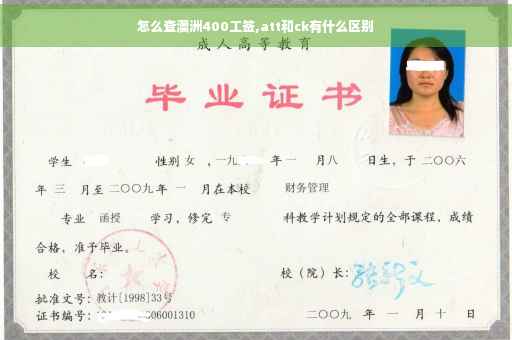 怎么查澳洲400工签,att和ck有什么区别
成人高等教育
毕业证书
学生 性别 女 ,一九 年一 月八 日生,于二〇〇六
年 三 月至二〇〇九年 一 月在本校 财务管理
专业 函授 学习,修完 专 科教学计划规定的全部课程,成绩
合格,准予毕业。
校 名: 校(院)长:
批准文号:教计[1998]33号
证书编号: 06001310 二〇〇九 年 一 月 十 日